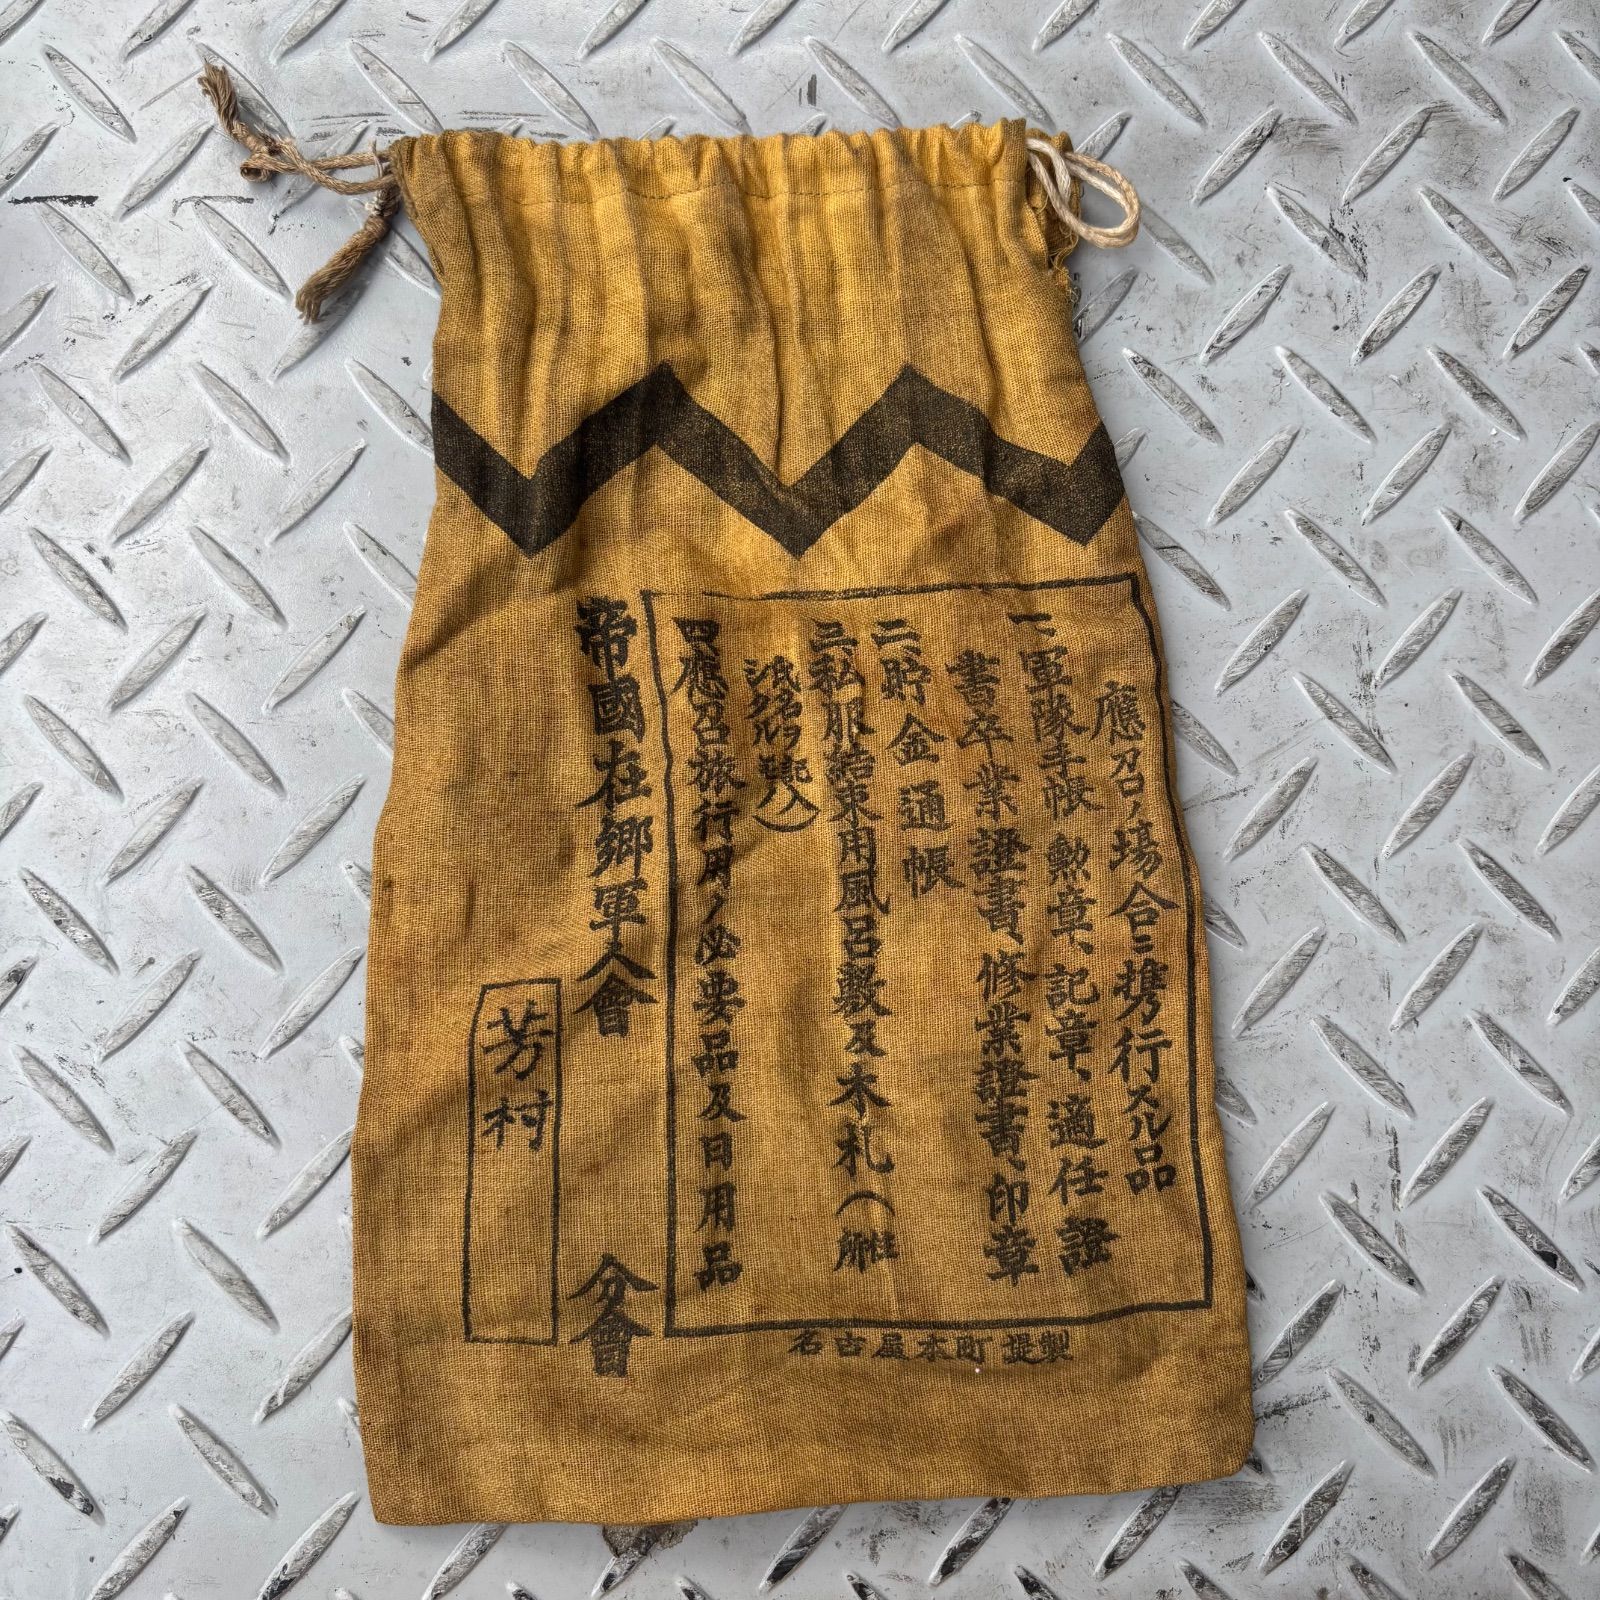 應召ノ場合ニ携行スル品
一、軍隊手帳、勲章、記章、適任證
書卒業證書、修業證書、印章
二、貯金通帳
三、私服結束用風呂敷及木札(住所
氏名ヲ記入
シタルモノ)
四、應召旅行用ノ必要品及日用品
帝國在郷軍人會
分會
芳村
名古屋本町 謹製